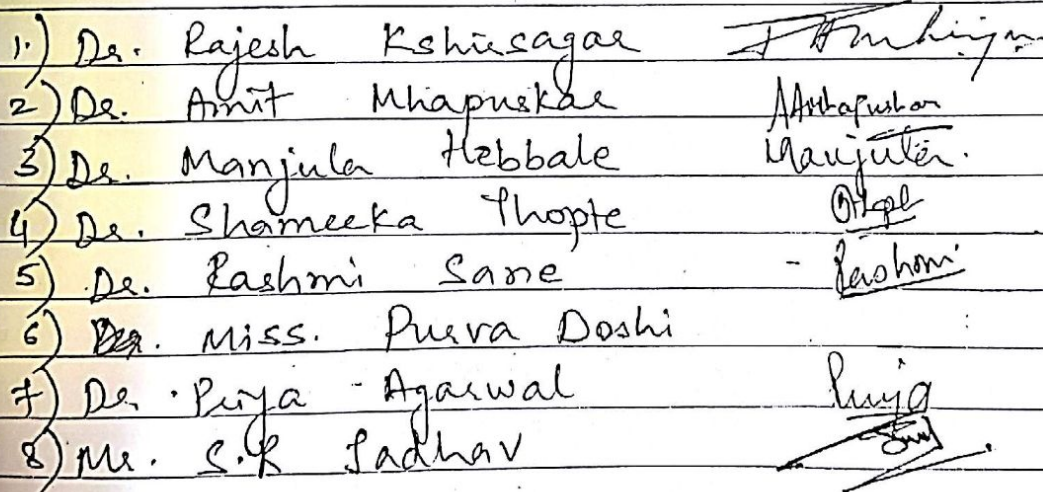 1.) Dr. Rajesh Kshirsagar
2) Dr. Amit Mhapuskar AMhapuskar
3) Dr. Manjula Hebbale Manjula.
4) Dr. Shameeka Thopte
5) Dr. Rashmi Sane - Rashmi
6) Miss. Purva Doshi
7) Dr. Priya Agarwal Priya
8) Mr. S.R Jadhav